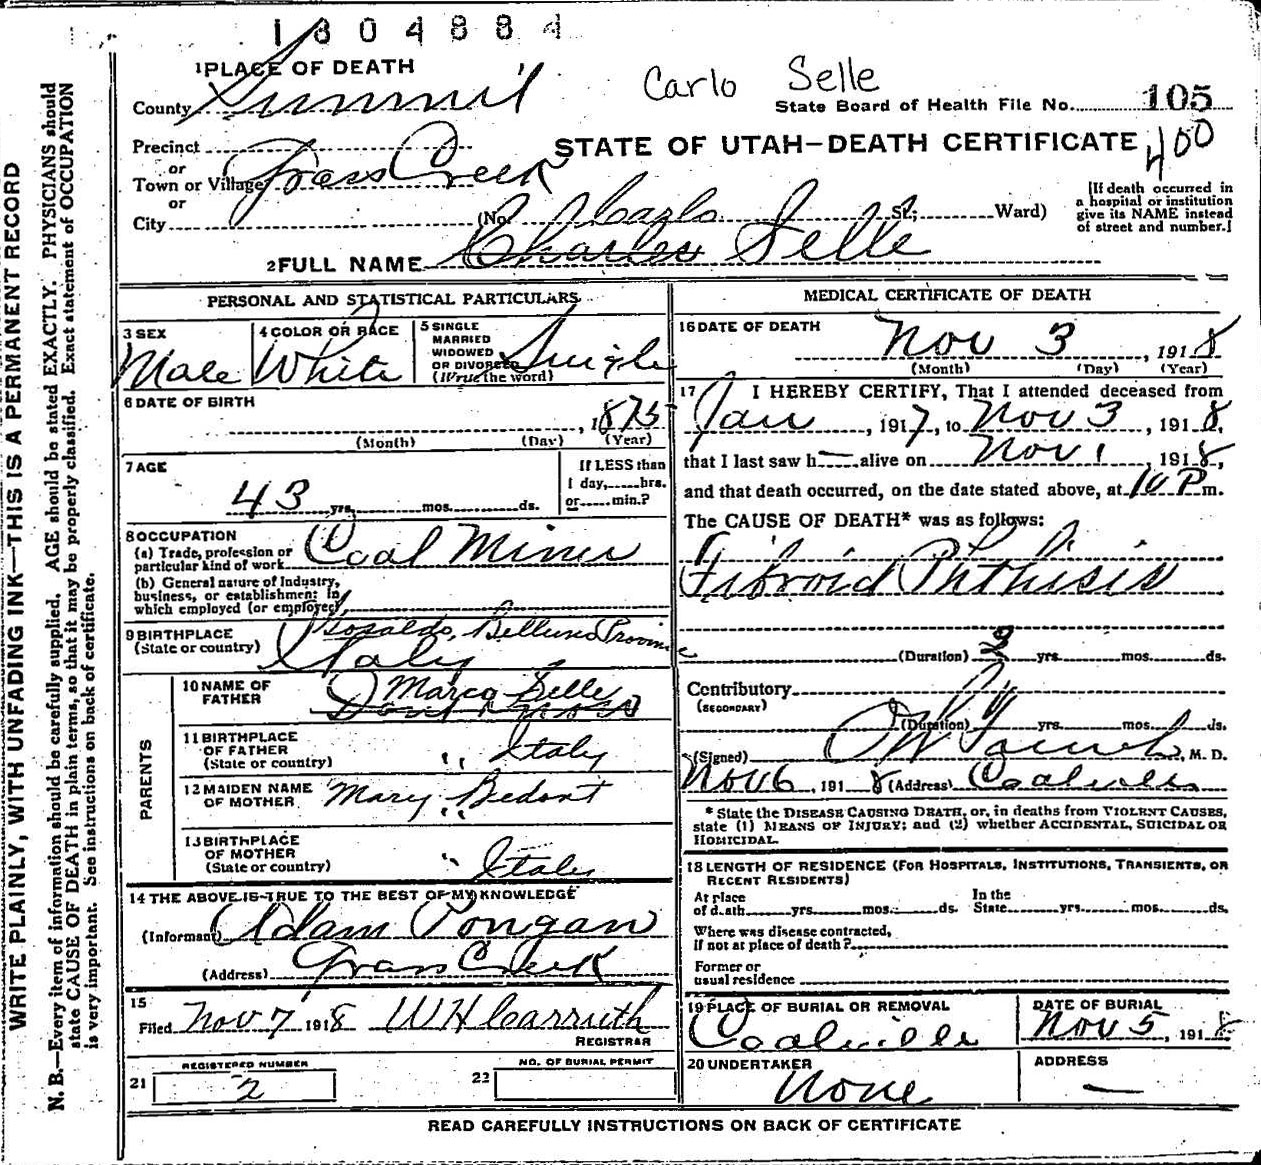 1304884
1 PLACE OF DEATH
Carlo Selle
County Summit
State Board of Health File No. 105
400
Precinct
STATE OF UTAH—DEATH CERTIFICATE
or
Town or Village Grass Creek
or
City (No. St; Ward)
[If death occurred in
a hospital or institution
give its NAME instead
of street and number.]
Carlo
2 FULL NAME Charles Selle
PERSONAL AND STATISTICAL PARTICULARS
3 SEX Male
4 COLOR OR RACE White
5 SINGLE
MARRIED
WIDOWED
OR DIVORCED
(Write the word) Single
6 DATE OF BIRTH
, 1875
(Month) (Day) (Year)
7 AGE
43 yrs. mos. ds.
If LESS than
1 day, hrs.
or min.?
8 OCCUPATION
(a) Trade, profession or
particular kind of work Coal Miner
(b) General nature of Industry,
business, or establishment in
which employed (or employer)
9 BIRTHPLACE
(State or country) Gosaldo, Belluno Province
Italy
PARENTS
10 NAME OF
FATHER Marco Selle
11 BIRTHPLACE
OF FATHER
(State or country) " Italy
12 MAIDEN NAME
OF MOTHER Mary Bedont
13 BIRTHPLACE
OF MOTHER
(State or country) " Italy
14 THE ABOVE IS TRUE TO THE BEST OF MY KNOWLEDGE
(Informant) Adam Pongan
(Address) Grass Creek
15
Filed Nov 7, 1918 W H Carruth
REGISTRAR
21 REGISTERED NUMBER
2
22 NO. OF BURIAL PERMIT
MEDICAL CERTIFICATE OF DEATH
16 DATE OF DEATH
Nov 3, 1918
(Month) (Day) (Year)
17 I HEREBY CERTIFY, That I attended deceased from
Jan, 1917, to Nov 3, 1918,
that I last saw h— alive on Nov 1, 1918,
and that death occurred, on the date stated above, at 10 P m.
The CAUSE OF DEATH* was as follows:
Fibroid Phthisis
(Duration) yrs. mos. ds.
Contributory
(SECONDARY)
(Duration) yrs. mos. ds.
(Signed) M. D.
Nov 6, 1918 (Address) Coalville
* State the DISEASE CAUSING DEATH, or, in deaths from VIOLENT CAUSES,
state (1) MEANS OF INJURY; and (2) whether ACCIDENTAL, SUICIDAL OR
HOMICIDAL.
18 LENGTH OF RESIDENCE (FOR HOSPITALS, INSTITUTIONS, TRANSIENTS, OR
RECENT RESIDENTS)
At place In the
of death yrs. mos. ds. State yrs. mos. ds.
Where was disease contracted,
if not at place of death?
Former or
usual residence
19 PLACE OF BURIAL OR REMOVAL
Coalville
DATE OF BURIAL
Nov 5, 1918
20 UNDERTAKER
None
ADDRESS
—
READ CAREFULLY INSTRUCTIONS ON BACK OF CERTIFICATE
WRITE PLAINLY, WITH UNFADING INK—THIS IS A PERMANENT RECORD
N. B.—Every item of information should be carefully supplied. AGE should be stated EXACTLY. PHYSICIANS should
state CAUSE OF DEATH in plain terms, so that it may be properly classified. Exact statement of OCCUPATION
is very important. See instructions on back of certificate.